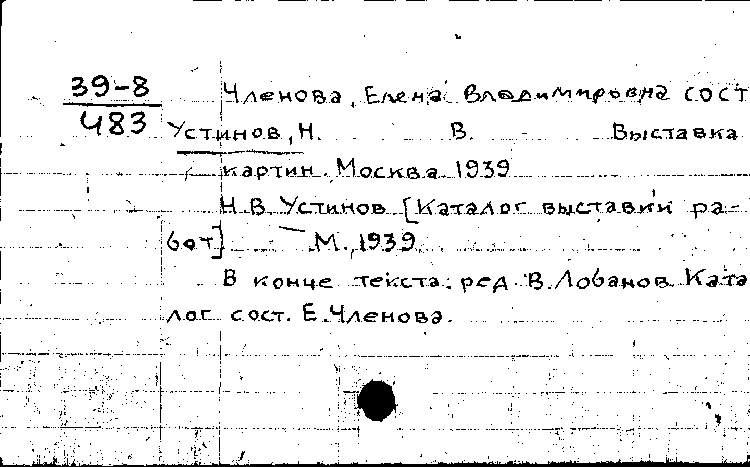 39-8
483
Членова, Елена Владимировна сост
Устинов, Н. В. Выставка
картин. Москва 1939
Н.В. Устинов [Каталог выставки ра-
бот] М., 1939
В конце текста: ред. В. Лобанов Ката
лог сост. Е. Членова.